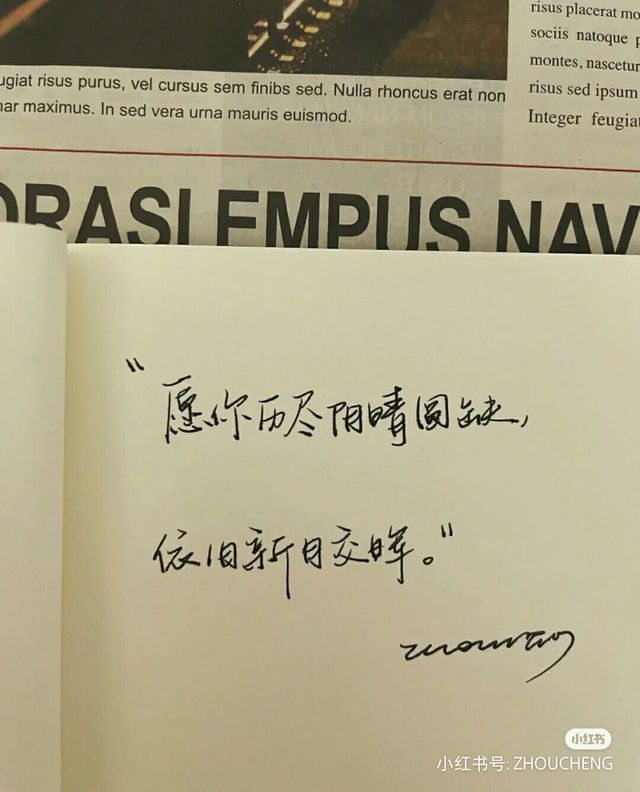 risus placerat mo
sociis natoque p
montes, nascetur
risus sed ipsum
Integer feugiat
ugiat risus purus, vel cursus sem finibs sed. Nulla rhoncus erat non
nar maximus. In sed vera urna mauris euismod.
ORASI EMPUS NAV
"愿你历尽阴晴圆缺,
依旧新日交晖。"
小红书
小红书号: ZHOUCHENG